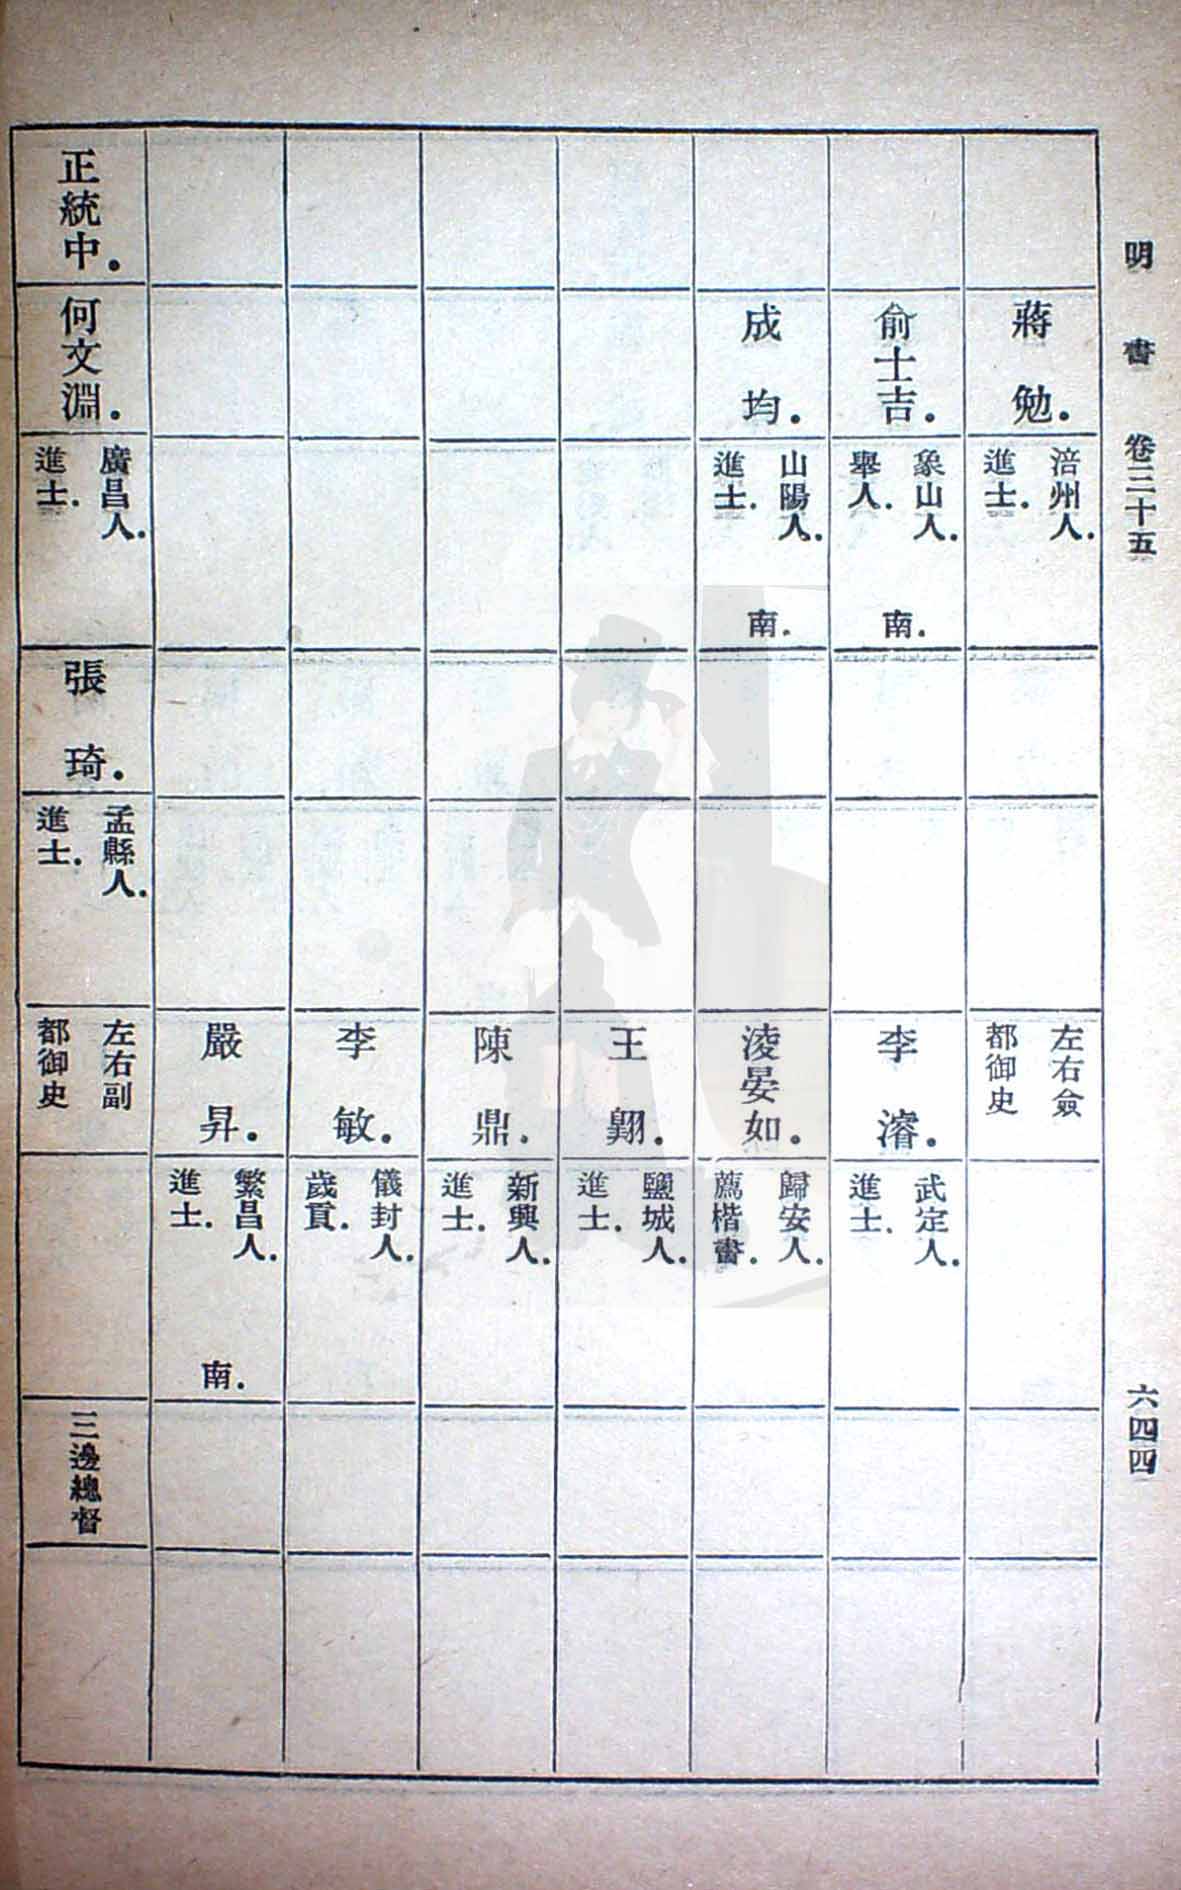 明書 卷三十五
六四四
蔣勉.
涪州人.
進士.
左右僉
都御史
俞士吉.
象山人.
舉人.
南.
李濬.
武定人.
進士.
成均.
山陽人.
進士.
南.
淩晏如.
歸安人.
薦楷書.
王翺.
鹽城人.
進士.
陳鼎.
新興人.
進士.
李敏.
儀封人.
歲貢.
嚴昇.
繁昌人.
進士.
南.
正統中.
何文淵.
廣昌人.
進士.
張琦.
孟縣人.
進士.
左右副
都御史
三邊總督